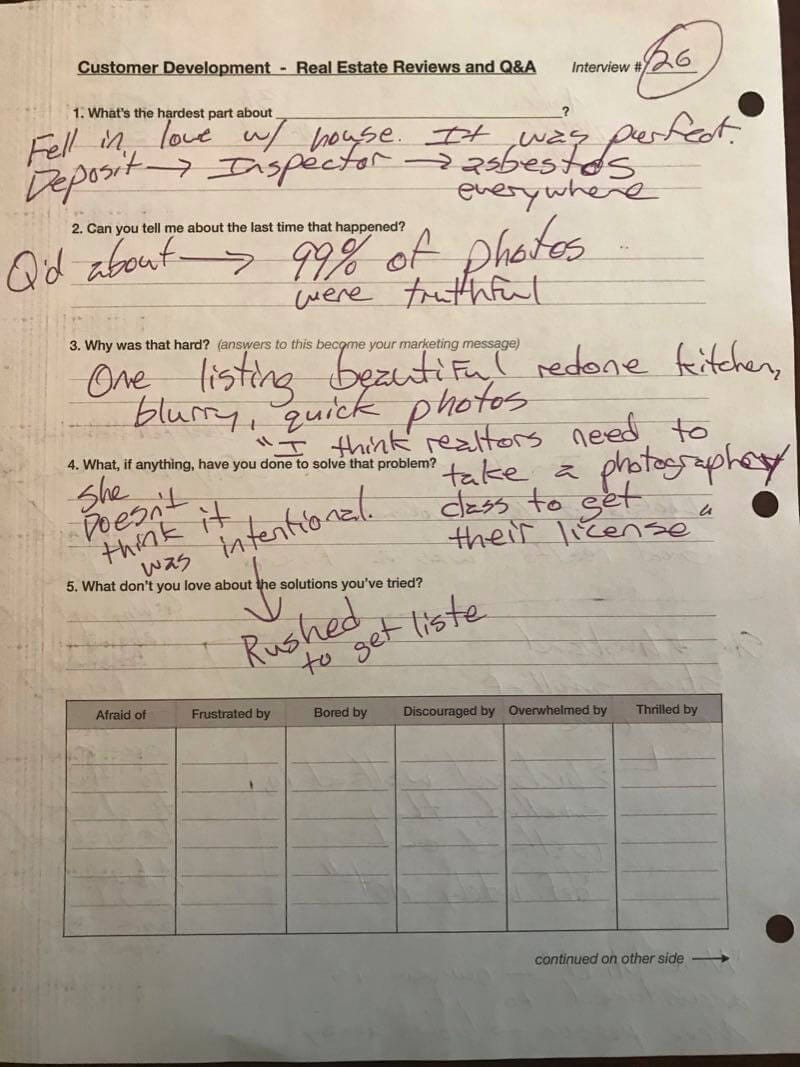 Customer Development - Real Estate Reviews and Q&A Interview # 26
1. What's the hardest part about ______________________________?
Fell in love w/ house. It was perfect.
Deposit → Inspector → asbestos
everywhere
2. Can you tell me about the last time that happened?
Q'd about → 99% of photos
were truthful
3. Why was that hard? (answers to this become your marketing message)
One listing beautiful redone kitchen,
blurry, quick photos
"I think realtors need to
4. What, if anything, have you done to solve that problem?
take a photography
class to get
their license"
She
Doesn't
think it
was intentional.
5. What don't you love about the solutions you've tried?
↓
Rushed
to get liste
Afraid of Frustrated by Bored by Discouraged by Overwhelmed by Thrilled by
continued on other side →